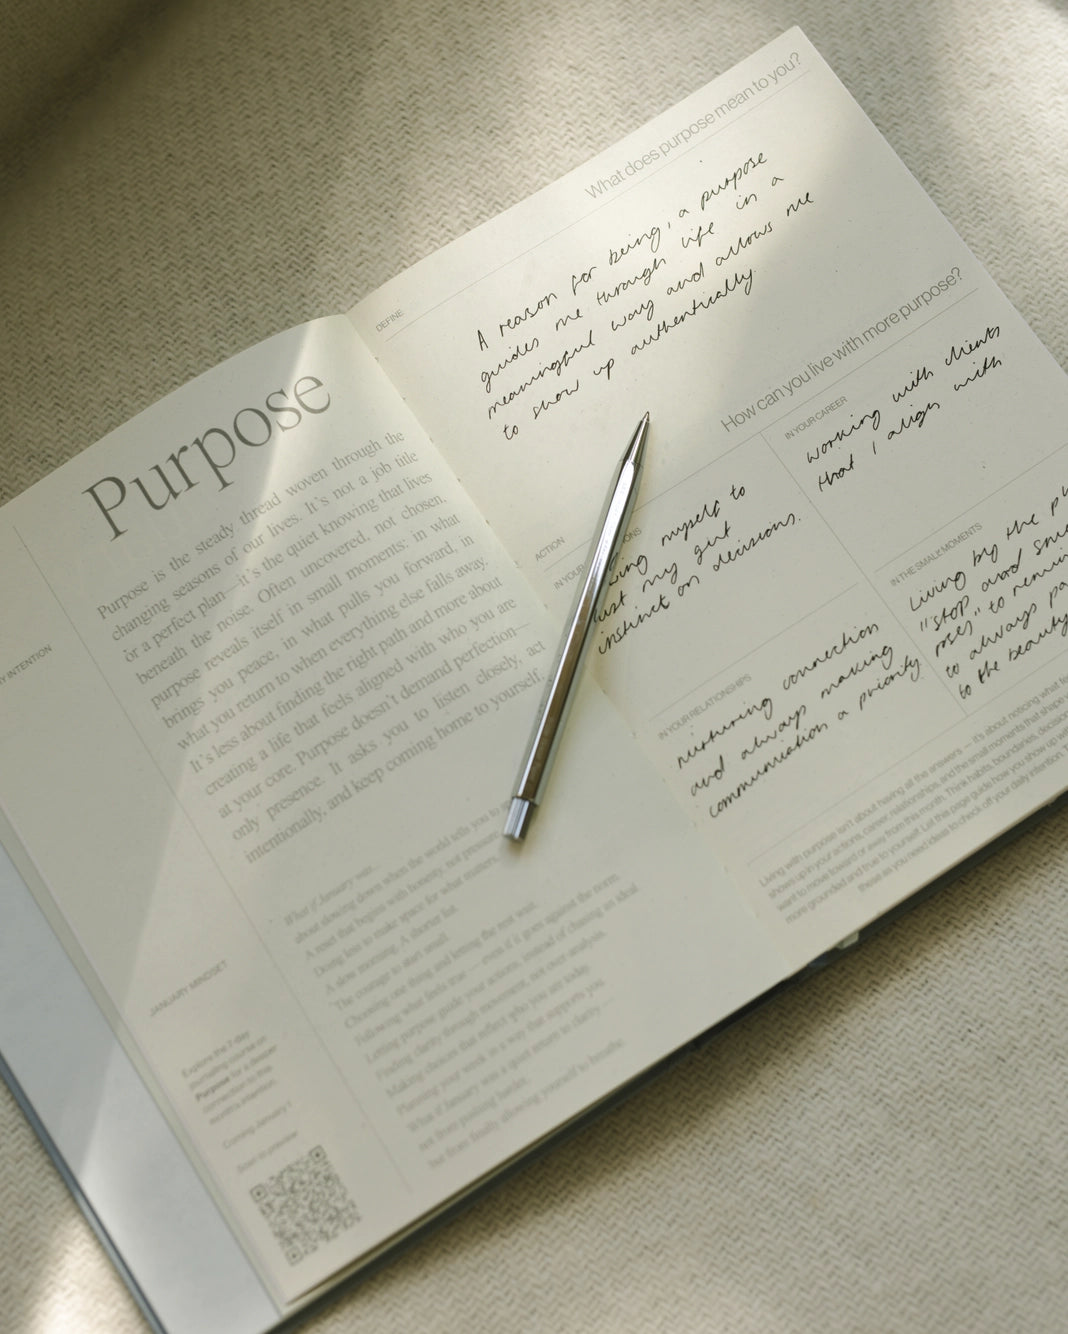 Purpose
Purpose is the steady thread woven through the
changing seasons of our lives. It's not a job title
or a perfect plan—it's the quiet knowing that lives
beneath the noise. Often uncovered, not chosen,
purpose reveals itself in small moments: in what
brings you peace, in what pulls you forward, in
what you return to when everything else falls away.
It's less about finding the right path and more about
creating a life that feels aligned with who you are
at your core. Purpose doesn't demand perfection—
only presence. It asks you to listen closely, act
intentionally, and keep coming home to yourself.
Y INTENTION
JANUARY MINDSET
What if January was...
about slowing down when the world tells you to
A reset that begins with honesty, not pressure.
Doing less to make space for what matters.
A slow morning. A shorter list.
The courage to start small.
Choosing one thing and letting the rest wait.
Following what feels true — even if it goes against the norm.
Letting purpose guide your actions, instead of chasing an ideal.
Finding clarity through movement, not over analysis.
Making choices that reflect who you are today.
Planning your week in a way that supports you.
What if January was a quiet return to clarity—
not from pushing harder,
but from finally allowing yourself to breathe.
Explore the 7 day
journaling course on
Purpose for a deeper
connection to this
month's intention.
Coming January 1
Scan to preview
What does purpose mean to you?
DEFINE
A reason for being, a purpose
guides me through life in a
meaningful way and allows me
to show up authentically.
How can you live with more purpose?
ACTION
IN YOUR
ONS
myself to
my gut
instinct on decisions.
IN YOUR CAREER
working with clients
that I align with
IN YOUR RELATIONSHIPS
nurturing connection
and always making
communication a priority.
IN THE SMALL MOMENTS
Living by the
"stop and
to
to always
to the beauty
Living with purpose isn't about having all the answers — it's about noticing what
shows up in your actions, career, relationships, and the small moments that shape
want to move toward or away from this month. Think habits, boundaries,
more grounded and true to yourself. Let this page guide how you show up
these as you need ideas to check off your daily intention.